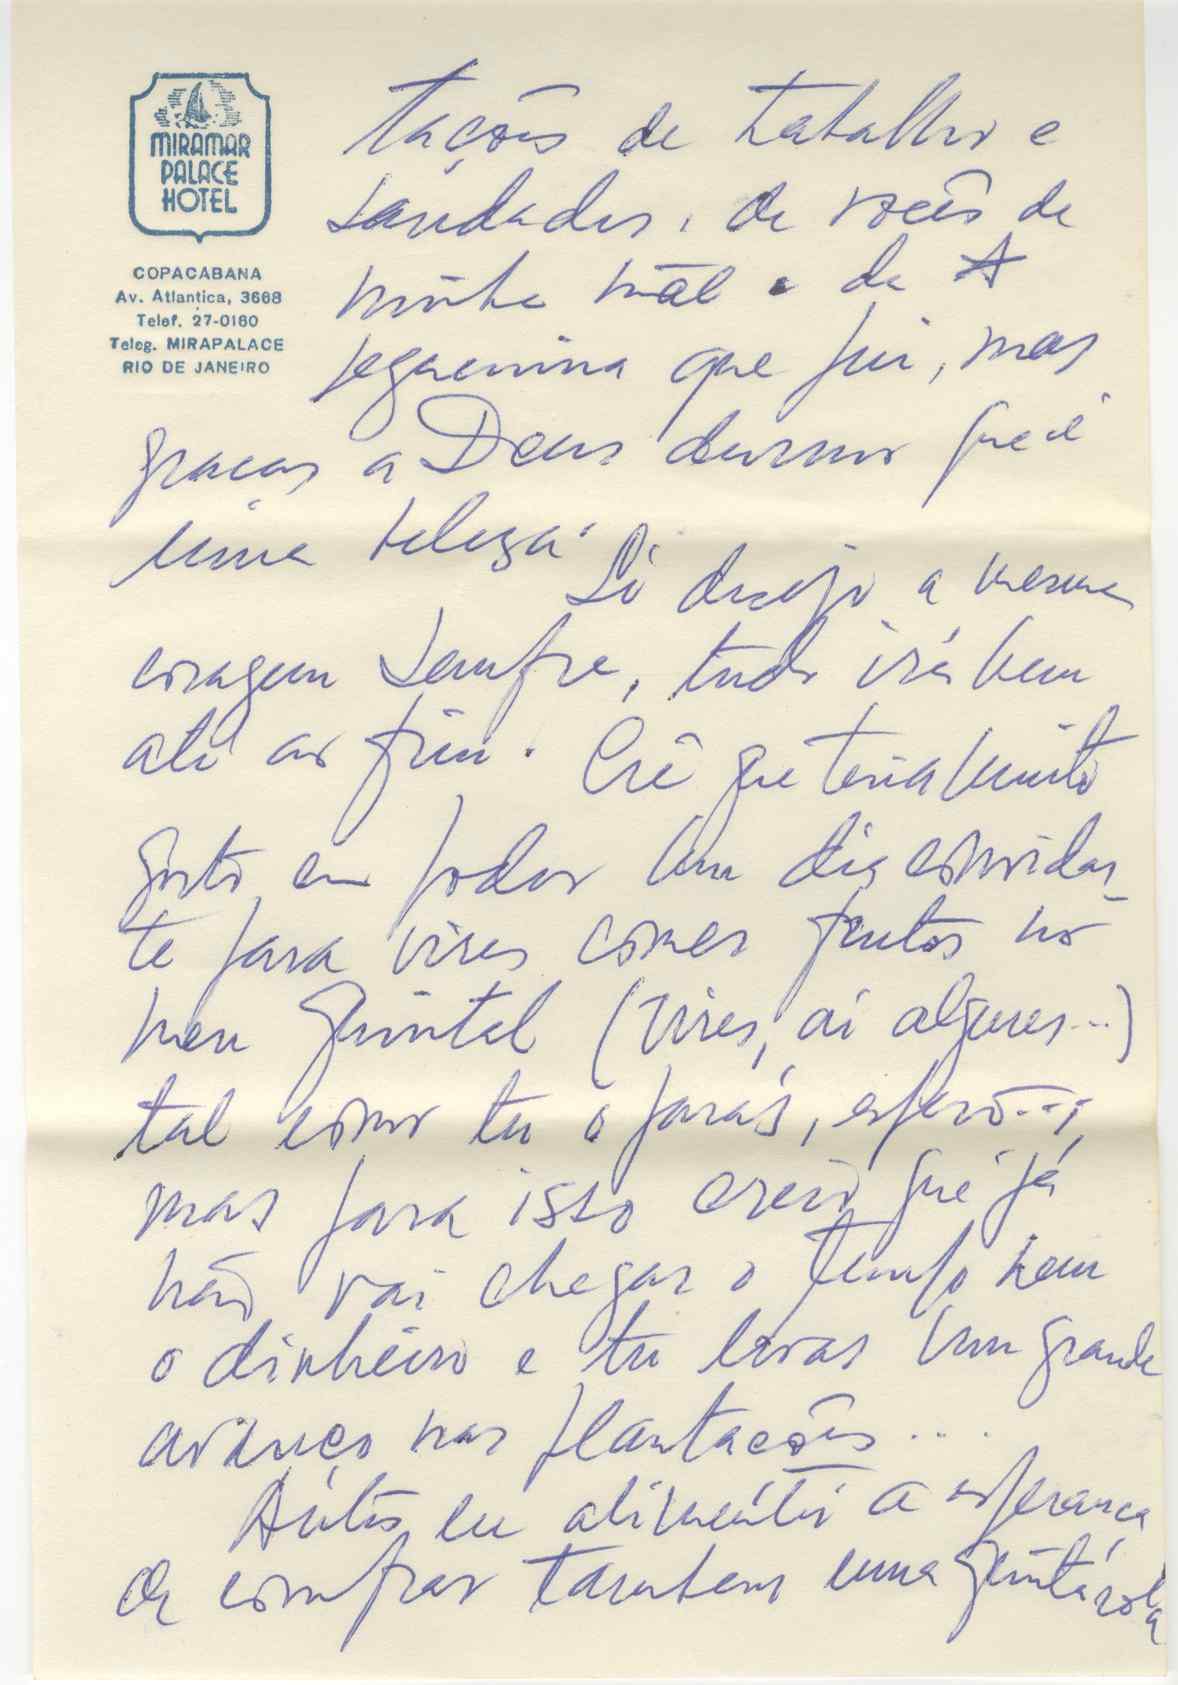 MIRAMAR
PALACE
HOTEL
COPACABANA
Av. Atlantica, 3668
Telef. 27-0160
Teleg. MIRAPALACE
RIO DE JANEIRO
tações de trabalho e
saudades, de vocês de
minha mãe e da
pequenina que fui, mas
graças a Deus durmo que é
uma beleza.
Só desejo a mesma
coragem sempre, tudo irá bem
até ao fim. Crê que teria muito
gosto em poder um dia convidar-
te para vires comer frutos no
meu quintal (vires, aí algures...)
tal como tu o farás, espero...,
mas para isso creio que já
não vai chegar o tempo nem
o dinheiro e tu levas um grande
avanço nas plantações...
eu alimentei a esperança
de comprar tambem uma quintarola